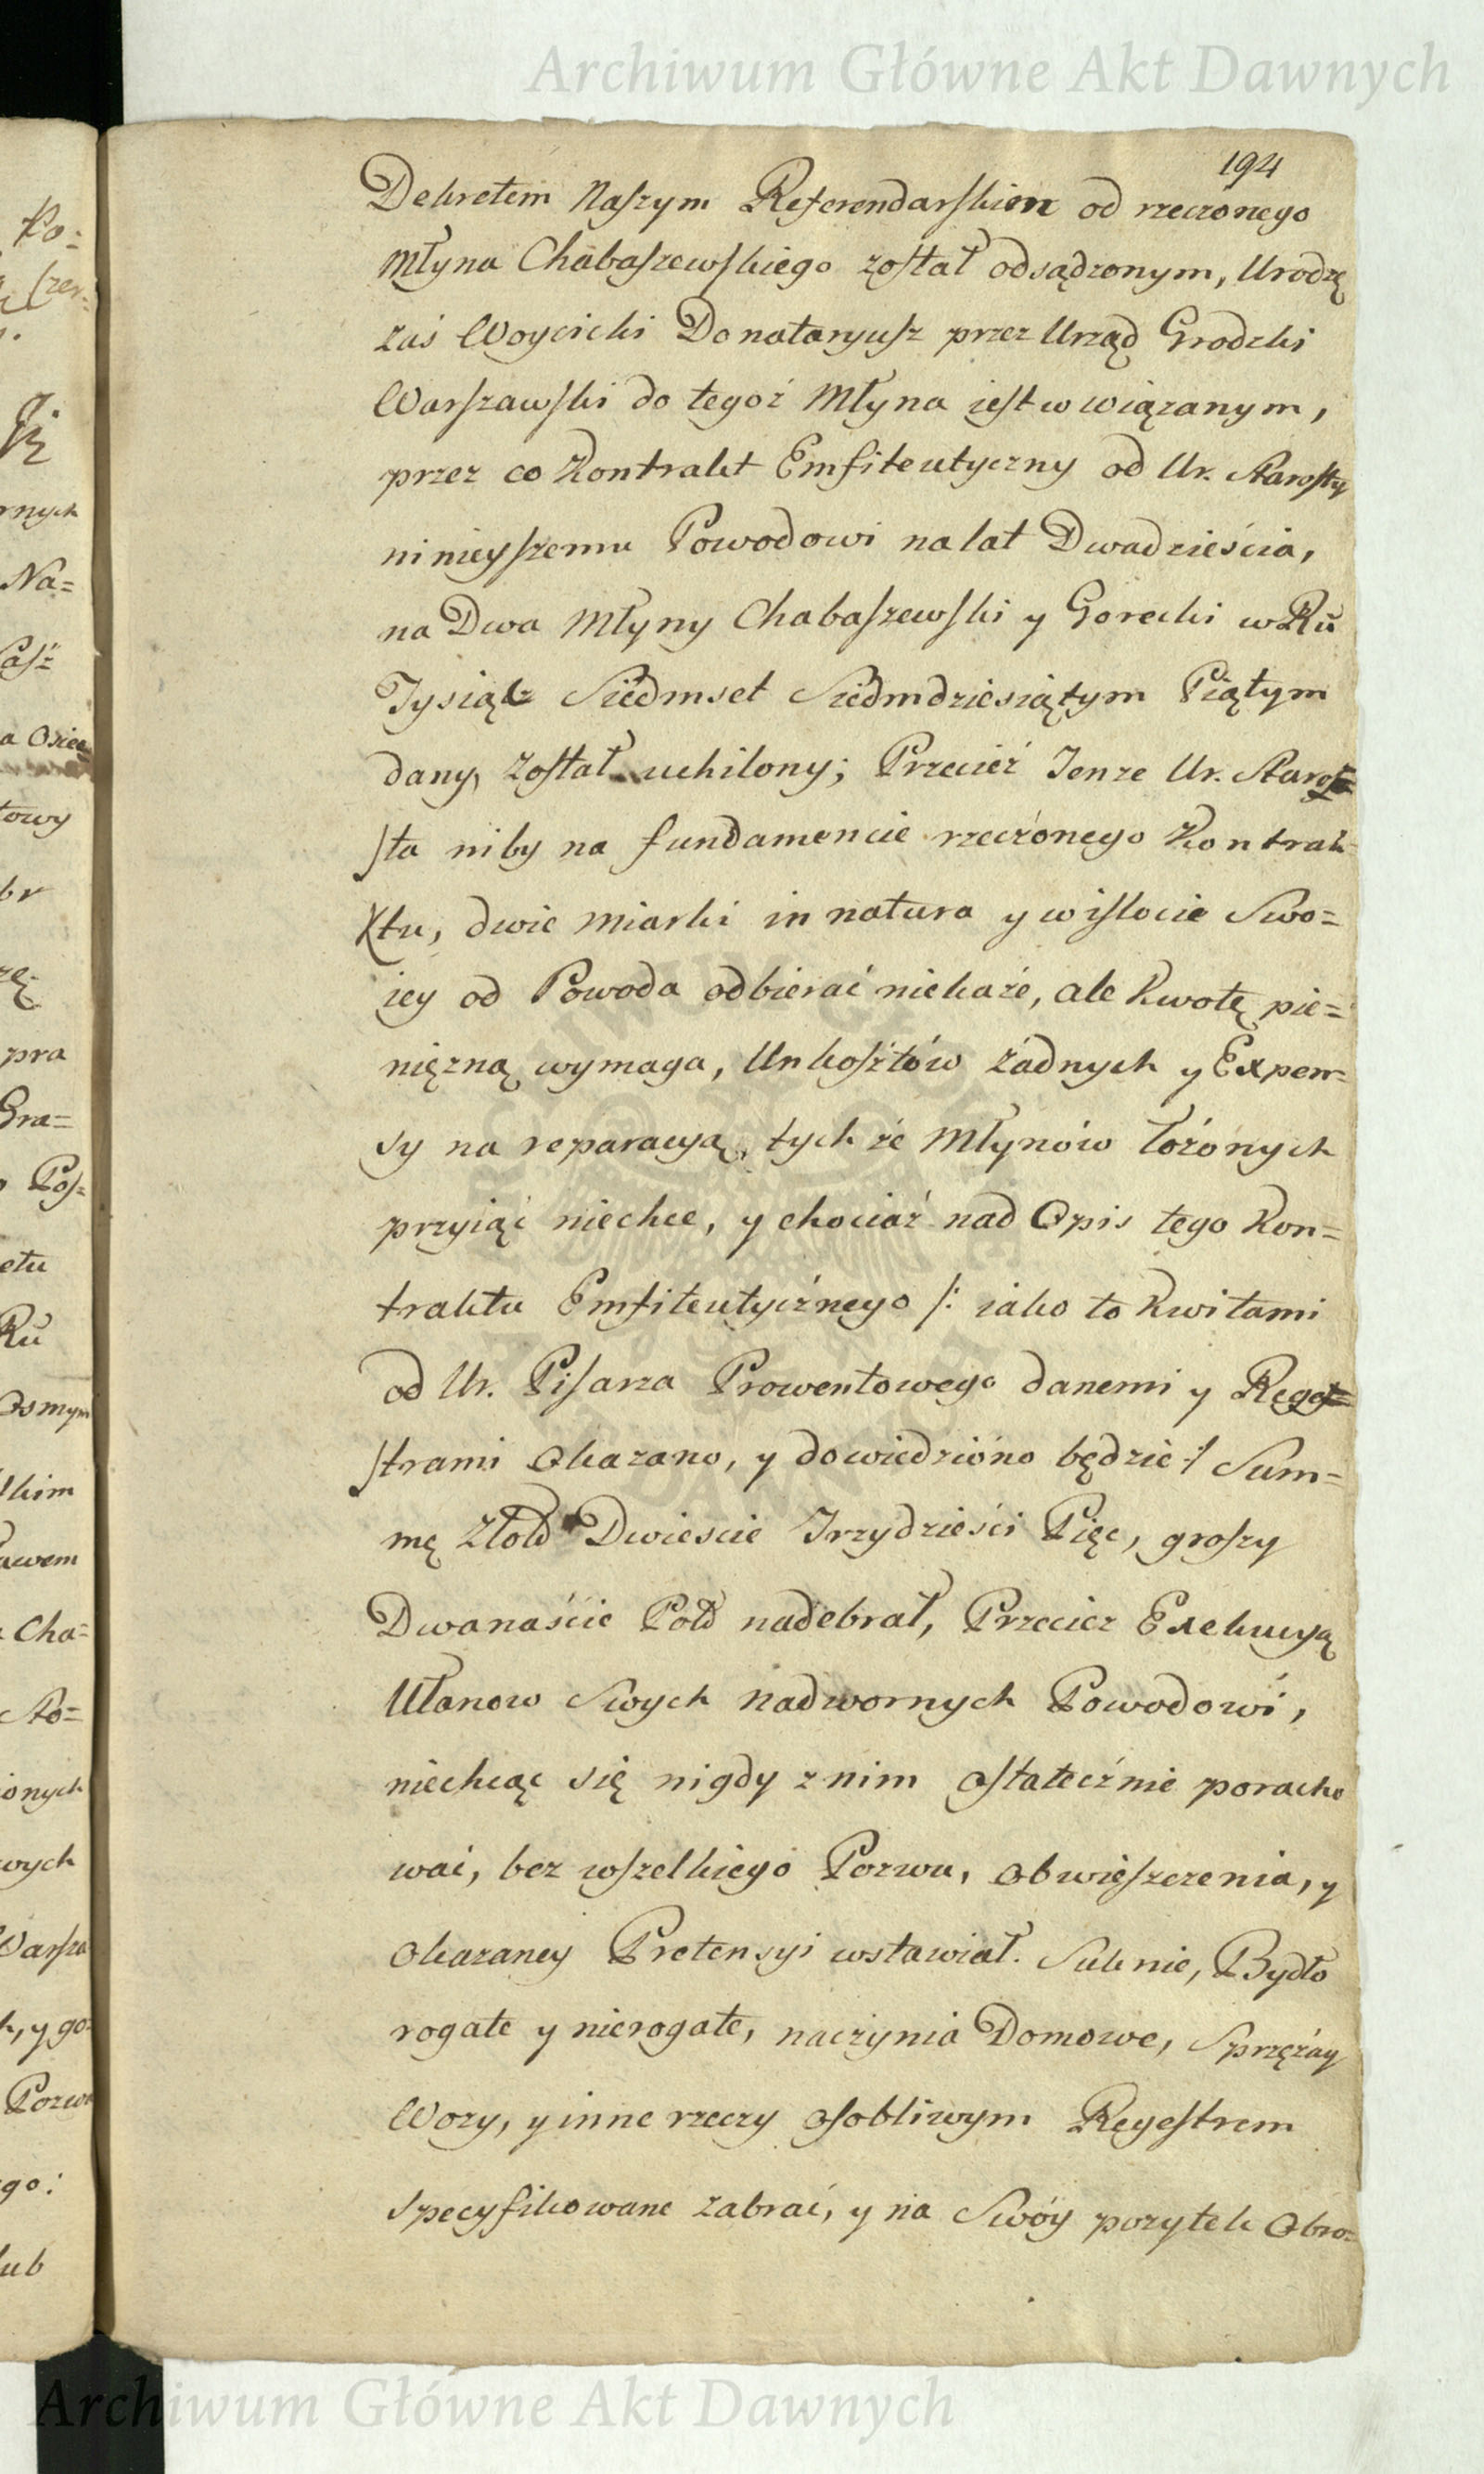 Archiwum Główne Akt Dawnych
194
Dekretem Naszym Referendarskim od rzeczonego
Młyna Chabaszewskiego został odsądzonym, Urodzę
zaś Woycicki Donataryusz przez Urząd Grodzki
Warszawski do tegoż Młyna iest wwiązanym,
przez co Kontrakt Emfiteutyczny od Ur. Starosty
ninieyszemu Powodowi na lat Dwadzieścia,
na Dwa Młyny Chabaszewski y Gorecki w Ru
Tysiąc Siedmset Siedmdziesiątym Piątym
dany, został uchilony; Przecież Tenze Ur. Staro=
sta niby na fundamencie rzeczonego Kontrak=
ktu, dwie miarki in natura y w istocie Swo=
iey od Powoda odbierać niekaże, ale kwotę pie=
niężną wymaga, Unkosztów żadnych y Expen=
sy na reparacyą, tychże Młynów łożonych
przyiąć niechce, y chociaż nad Opis tego Kon=
traktu Emfiteutycznego /: iako to kwitami
od Ur. Pisarza Prowentowego danemi y Rege=
strami okazano, y dowiedziono będzie :/ Sum=
mę Złotd Dwieście Trzydzieści Pięc, groszy
Dwanaście Pold nadebrał, Przecież Exekucyą
Ułanow Swych nadwornych Powodowi,
niechcąc się nigdy z nim ostatecznie poracho
wać, bez wszelkiego Pozwu, obwieszczenia, y
okazaney Pretensyi wstawiał. Suknie, Bydło
rogate y nierogate, naczynia Domowe, Sprzężay
Wozy, y inne rzeczy osobliwym Regestrem
specyfikowane zabrać, y na Swóy pozytek obro=
Archiwum Główne Akt Dawnych